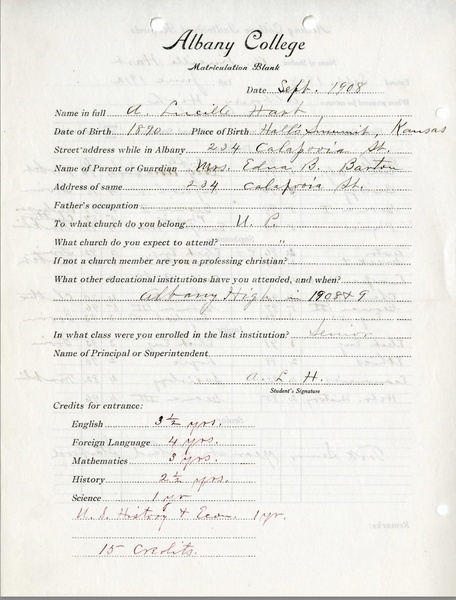 Albany College
Matriculation Blank
Date Sept. 1908
Name in full A Lucille Hart
Date of Birth 1890 Place of Birth Hall's Summit, Kansas
Street address while in Albany 234 Calapooia St.
Name of Parent or Guardian Mrs. Edna B. Barton
Address of same 234 Calapooia St.
Father's occupation
To what church do you belong U. P.
What church do you expect to attend? "
If not a church member are you a professing christian?
What other educational institutions have you attended, and when?
Albany High in 1908 & 9
In what class were you enrolled in the last institution? Senior
Name of Principal or Superintendent
A. L. H.
Student's Signature
Credits for entrance:
English 3 1/2 yrs.
Foreign Language 4 yrs.
Mathematics 3 yrs.
History 2 1/2 yrs.
Science 1 yr
U. S. History & Econ. 1 yr.
15 Credits.